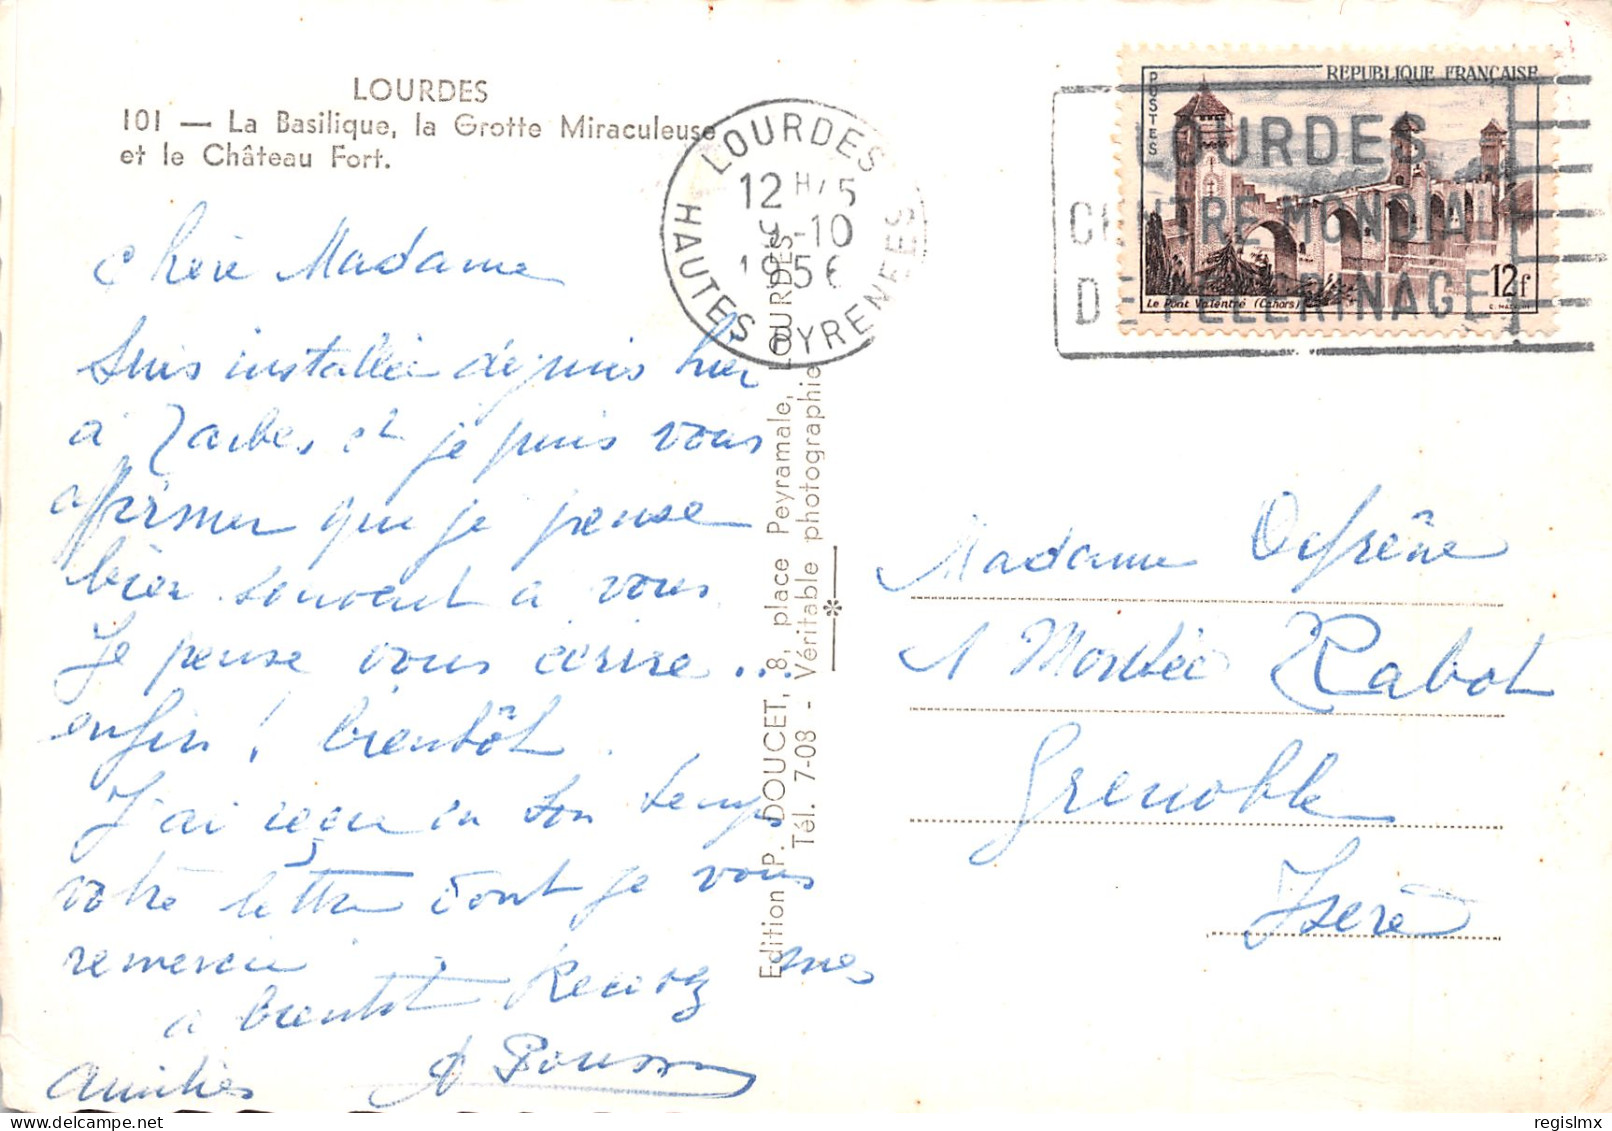 LOURDES
101 — La Basilique, la Grotte Miraculeuse
et le Château Fort.
Chère Madame
Suis installée depuis hier
à Tarbes et je puis vous
affirmer que je pense
bien souvent à vous
Je pense vous écrire ...
enfin ! bientôt.
J'ai reçu en son temps
votre lettre dont je vous
remercie
a bientôt Recevez mes
Amitiés
Edition P. DOUCET, 8, place Peyramale, LOURDES
Tél. 7-08 - Véritable photographie
LOURDES
12 H 15
-10
1956
HAUTES PYRENEES
LOURDES
CENTRE MONDIAL
DE PELERINAGE
POSTES
REPUBLIQUE FRANÇAISE
Le Pont Valentré (Cahors)
12f
Madame
1 Montée Rabot
Grenoble
Isère
regislmx